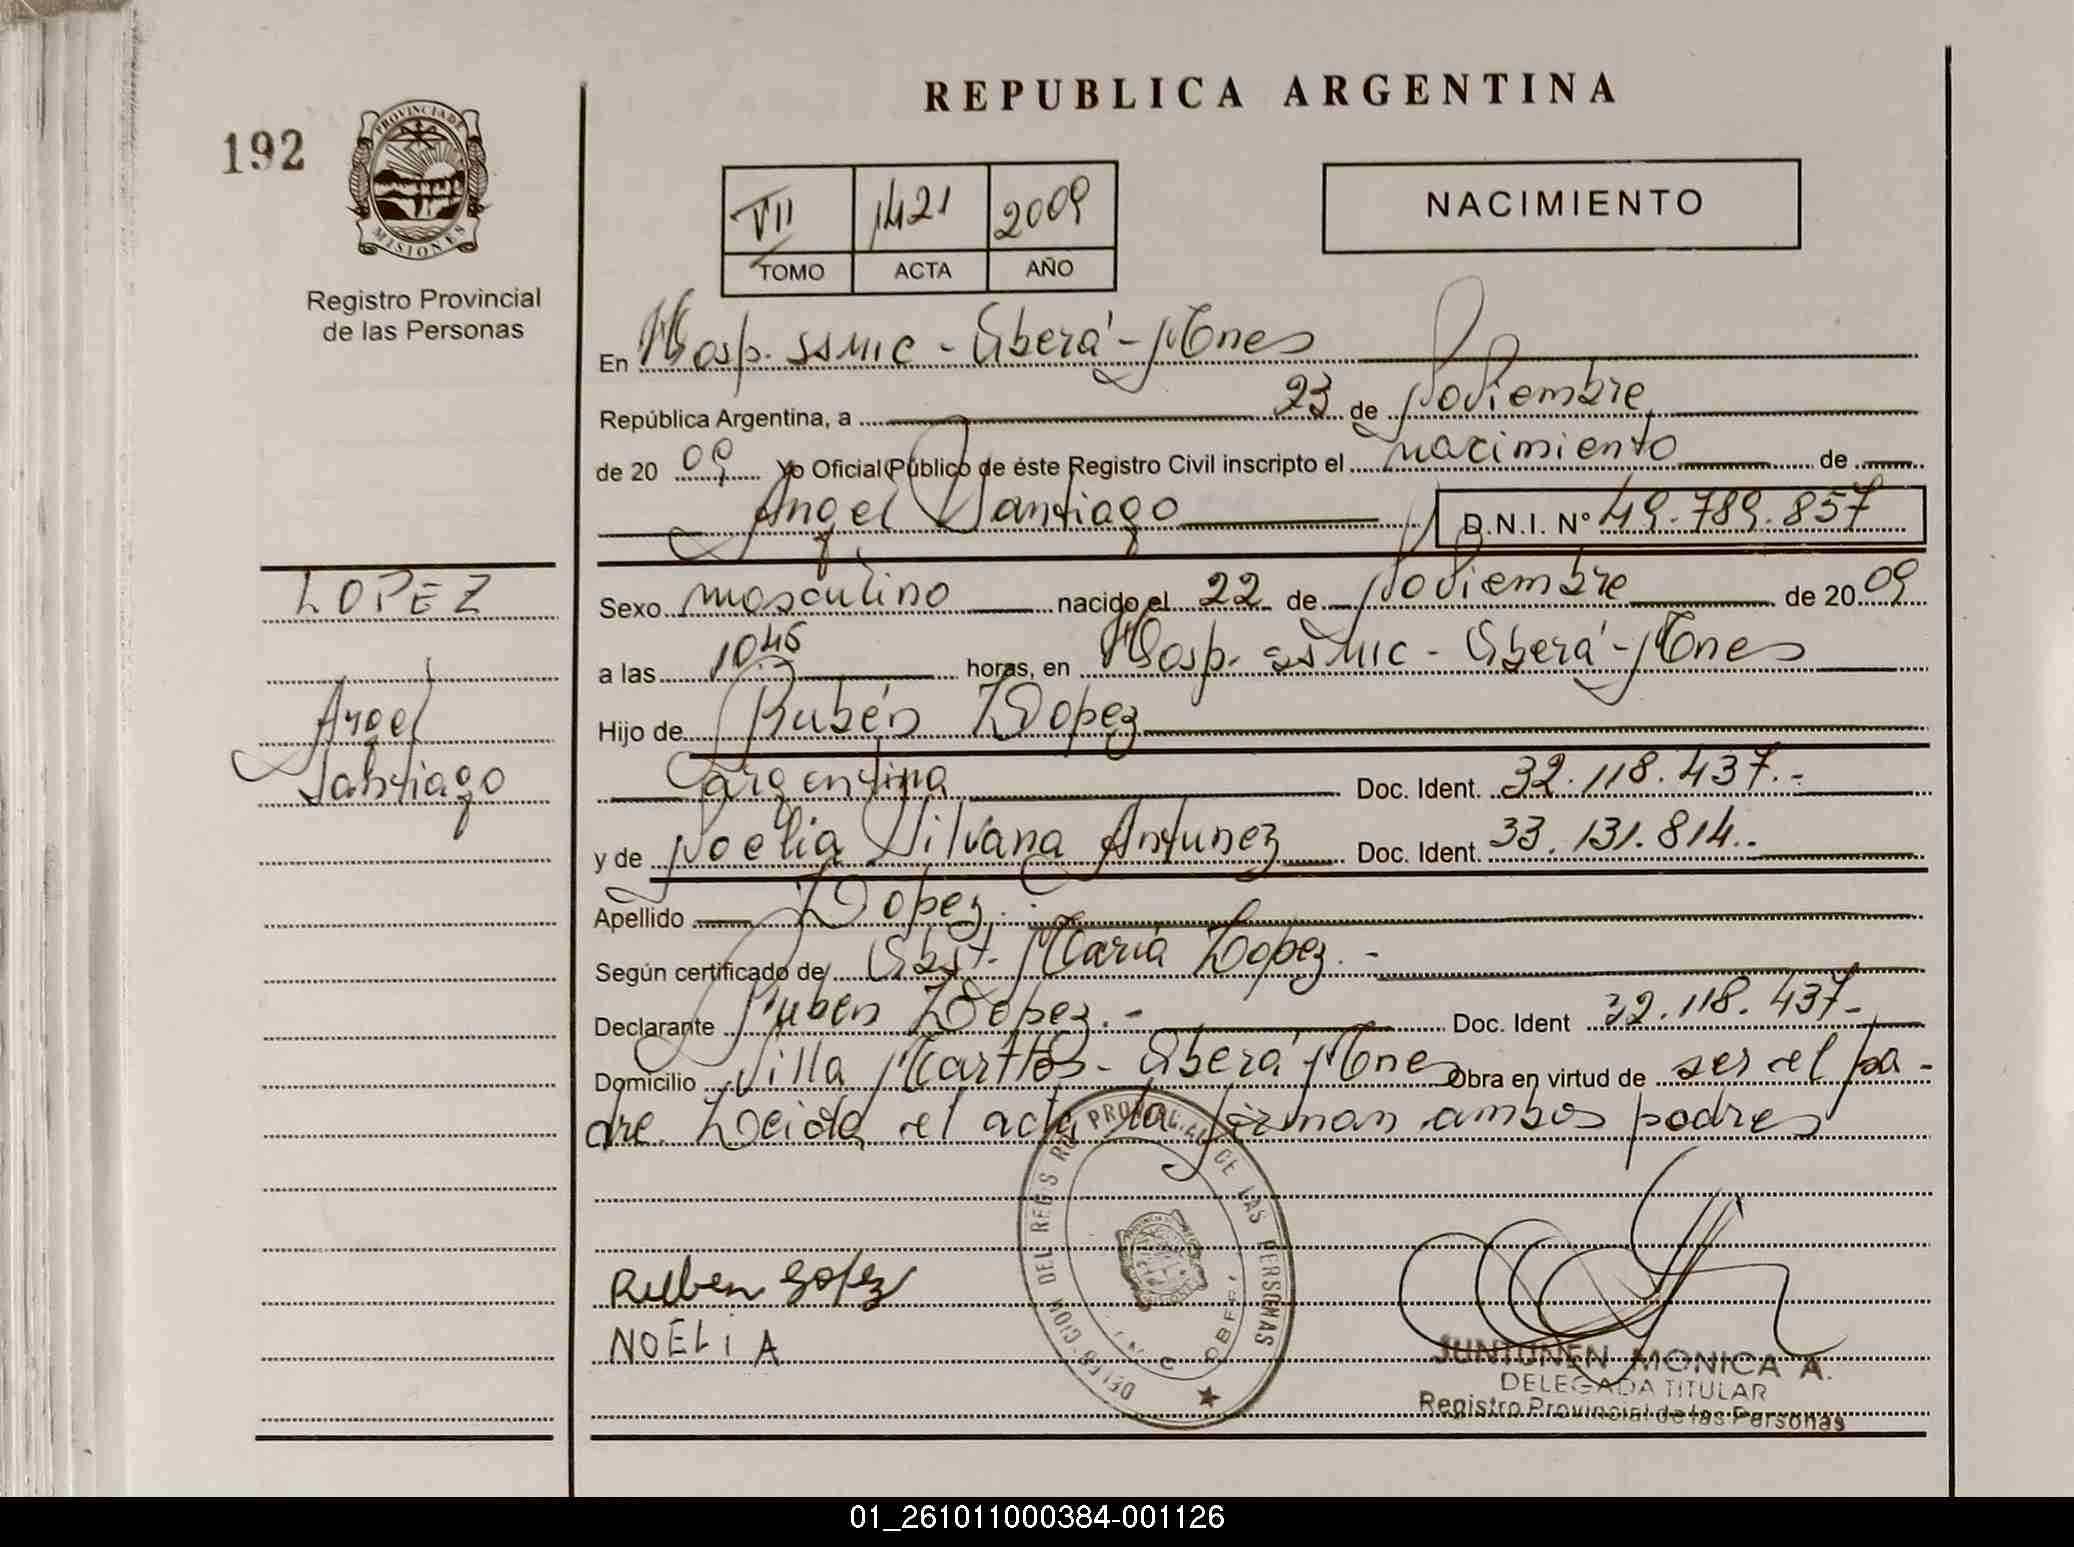 REPUBLICA ARGENTINA
192
PROVINCIA DE
MISIONES
Registro Provincial
de las Personas
VII 1421 2009
TOMO ACTA AÑO
NACIMIENTO
En Hosp. SSMIC - Oberá - Mnes
República Argentina, a 23 de Noviembre
de 20 09 Yo Oficial Público de éste Registro Civil inscripto el nacimiento de
Angel Santiago D.N.I. Nº 49.789.857
LOPEZ
Angel
Santiago
Sexo masculino nacido el 22 de Noviembre de 20 09
a las 1045 horas, en Hosp. SSMIC - Oberá - Mnes
Hijo de Rubén Lopez
argentina Doc. Ident. 32.118.437.-
y de Noelia Silvana Antunez Doc. Ident. 33.131.814.-
Apellido Lopez.
Según certificado de Obst. María Lopez.-
Declarante Ruben Lopez.- Doc. Ident 32.118.437-
Domicilio Villa - Oberá Mnes Obra en virtud de ser el pa-
dre. Leida el acta la firman ambos padres
Ruben Lopez
NOELiA
PROVINCIAL DE LAS PERSONAS
JUNTUNEN MONICA A.
DELEGADA TITULAR
Registro Provincial de las Personas
01_261011000384-001126